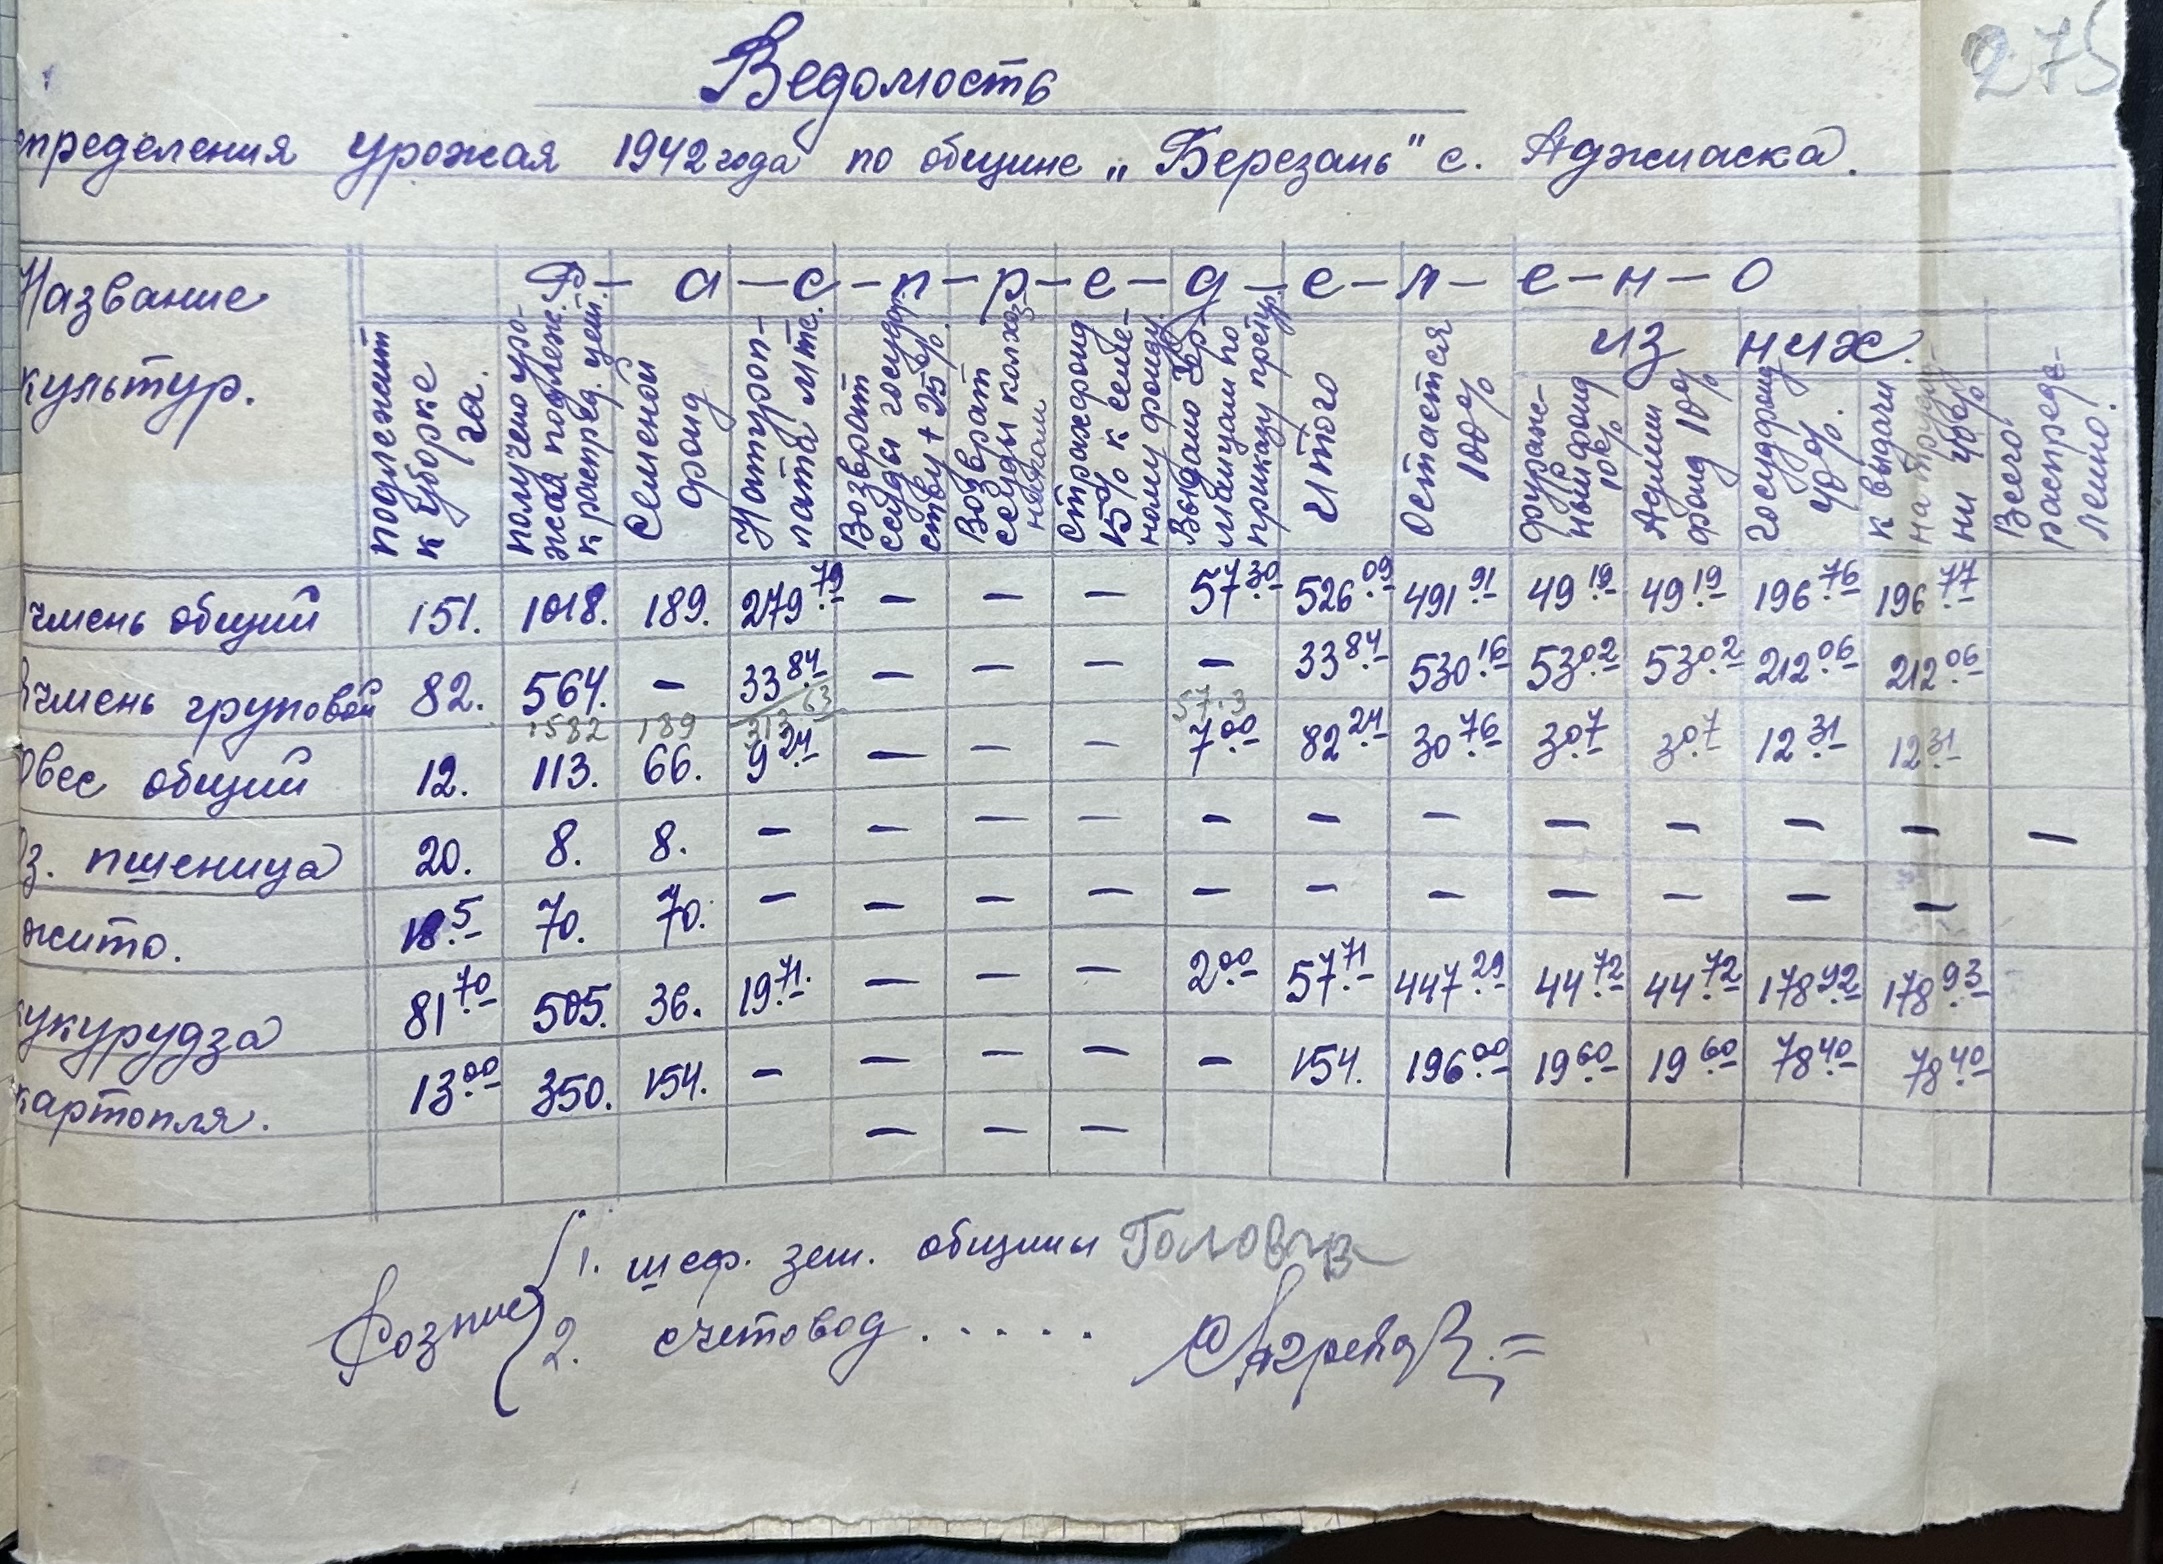 275
Ведомость
определения урожая 1942 года по общине „Березань" с. Аджиаска.
Название культур.
Р-а-с-п-р-е-д-е-л-е-н-о
из них.
подлежит к уборке га.
получено урожая подлеж. к распред. цент.
Семеной фонд
Натуроплата мтс.
Возврат ссуды государству + 25%.
Возврат ссуды колхоз
Страхфонд 15% к семеному фонду.
Выдано
по приказу префек.
Итого
Остается 100%
фуражный фонд 10%
Админ фонд 10%
Госуд фонд 40%.
к выдачи на трудодни 40%
Всего распределено.
ячмень общий 151. 1018. 189. 279.79 – – – 57.30 526.09 491.91 49.19 49.19 196.76 196.77
ячмень груповой 82. 564. – 33.84 – – – – 33.84 530.16 53.02 53.02 212.06 212.06
1582 189 313.63 57.3
Овес общий 12. 113. 66. 9.24 – – – 7.00 82.24 30.76 3.07 3.07 12.31 12.31
Оз. пшеница 20. 8. 8. – – – – – – – – – – – –
жито. 18.5 70. 70. – – – – – – – – – – –
кукурудза 81.70 505. 36. 19.71. – – – 2.00 57.71 447.29 44.72 44.72 178.92 178.93
картопля. 13.00 350. 154. – – – – – 154. 196.00 19.60 19.60 78.40 78.40
– – –
1. шеф. зем. общины
2. счетовод . . . . .